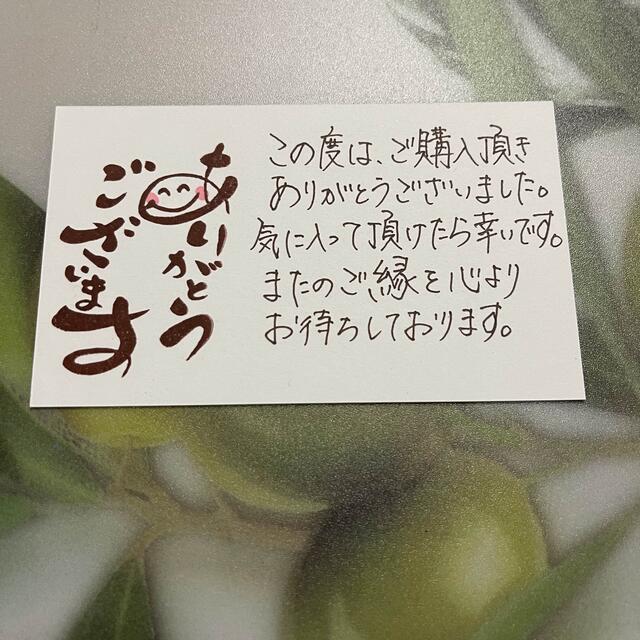 ありがとう
ございます
この度は、ご購入頂き
ありがとうございました。
気に入って頂けたら幸いです。
またのご縁を心より
お待ちしております。